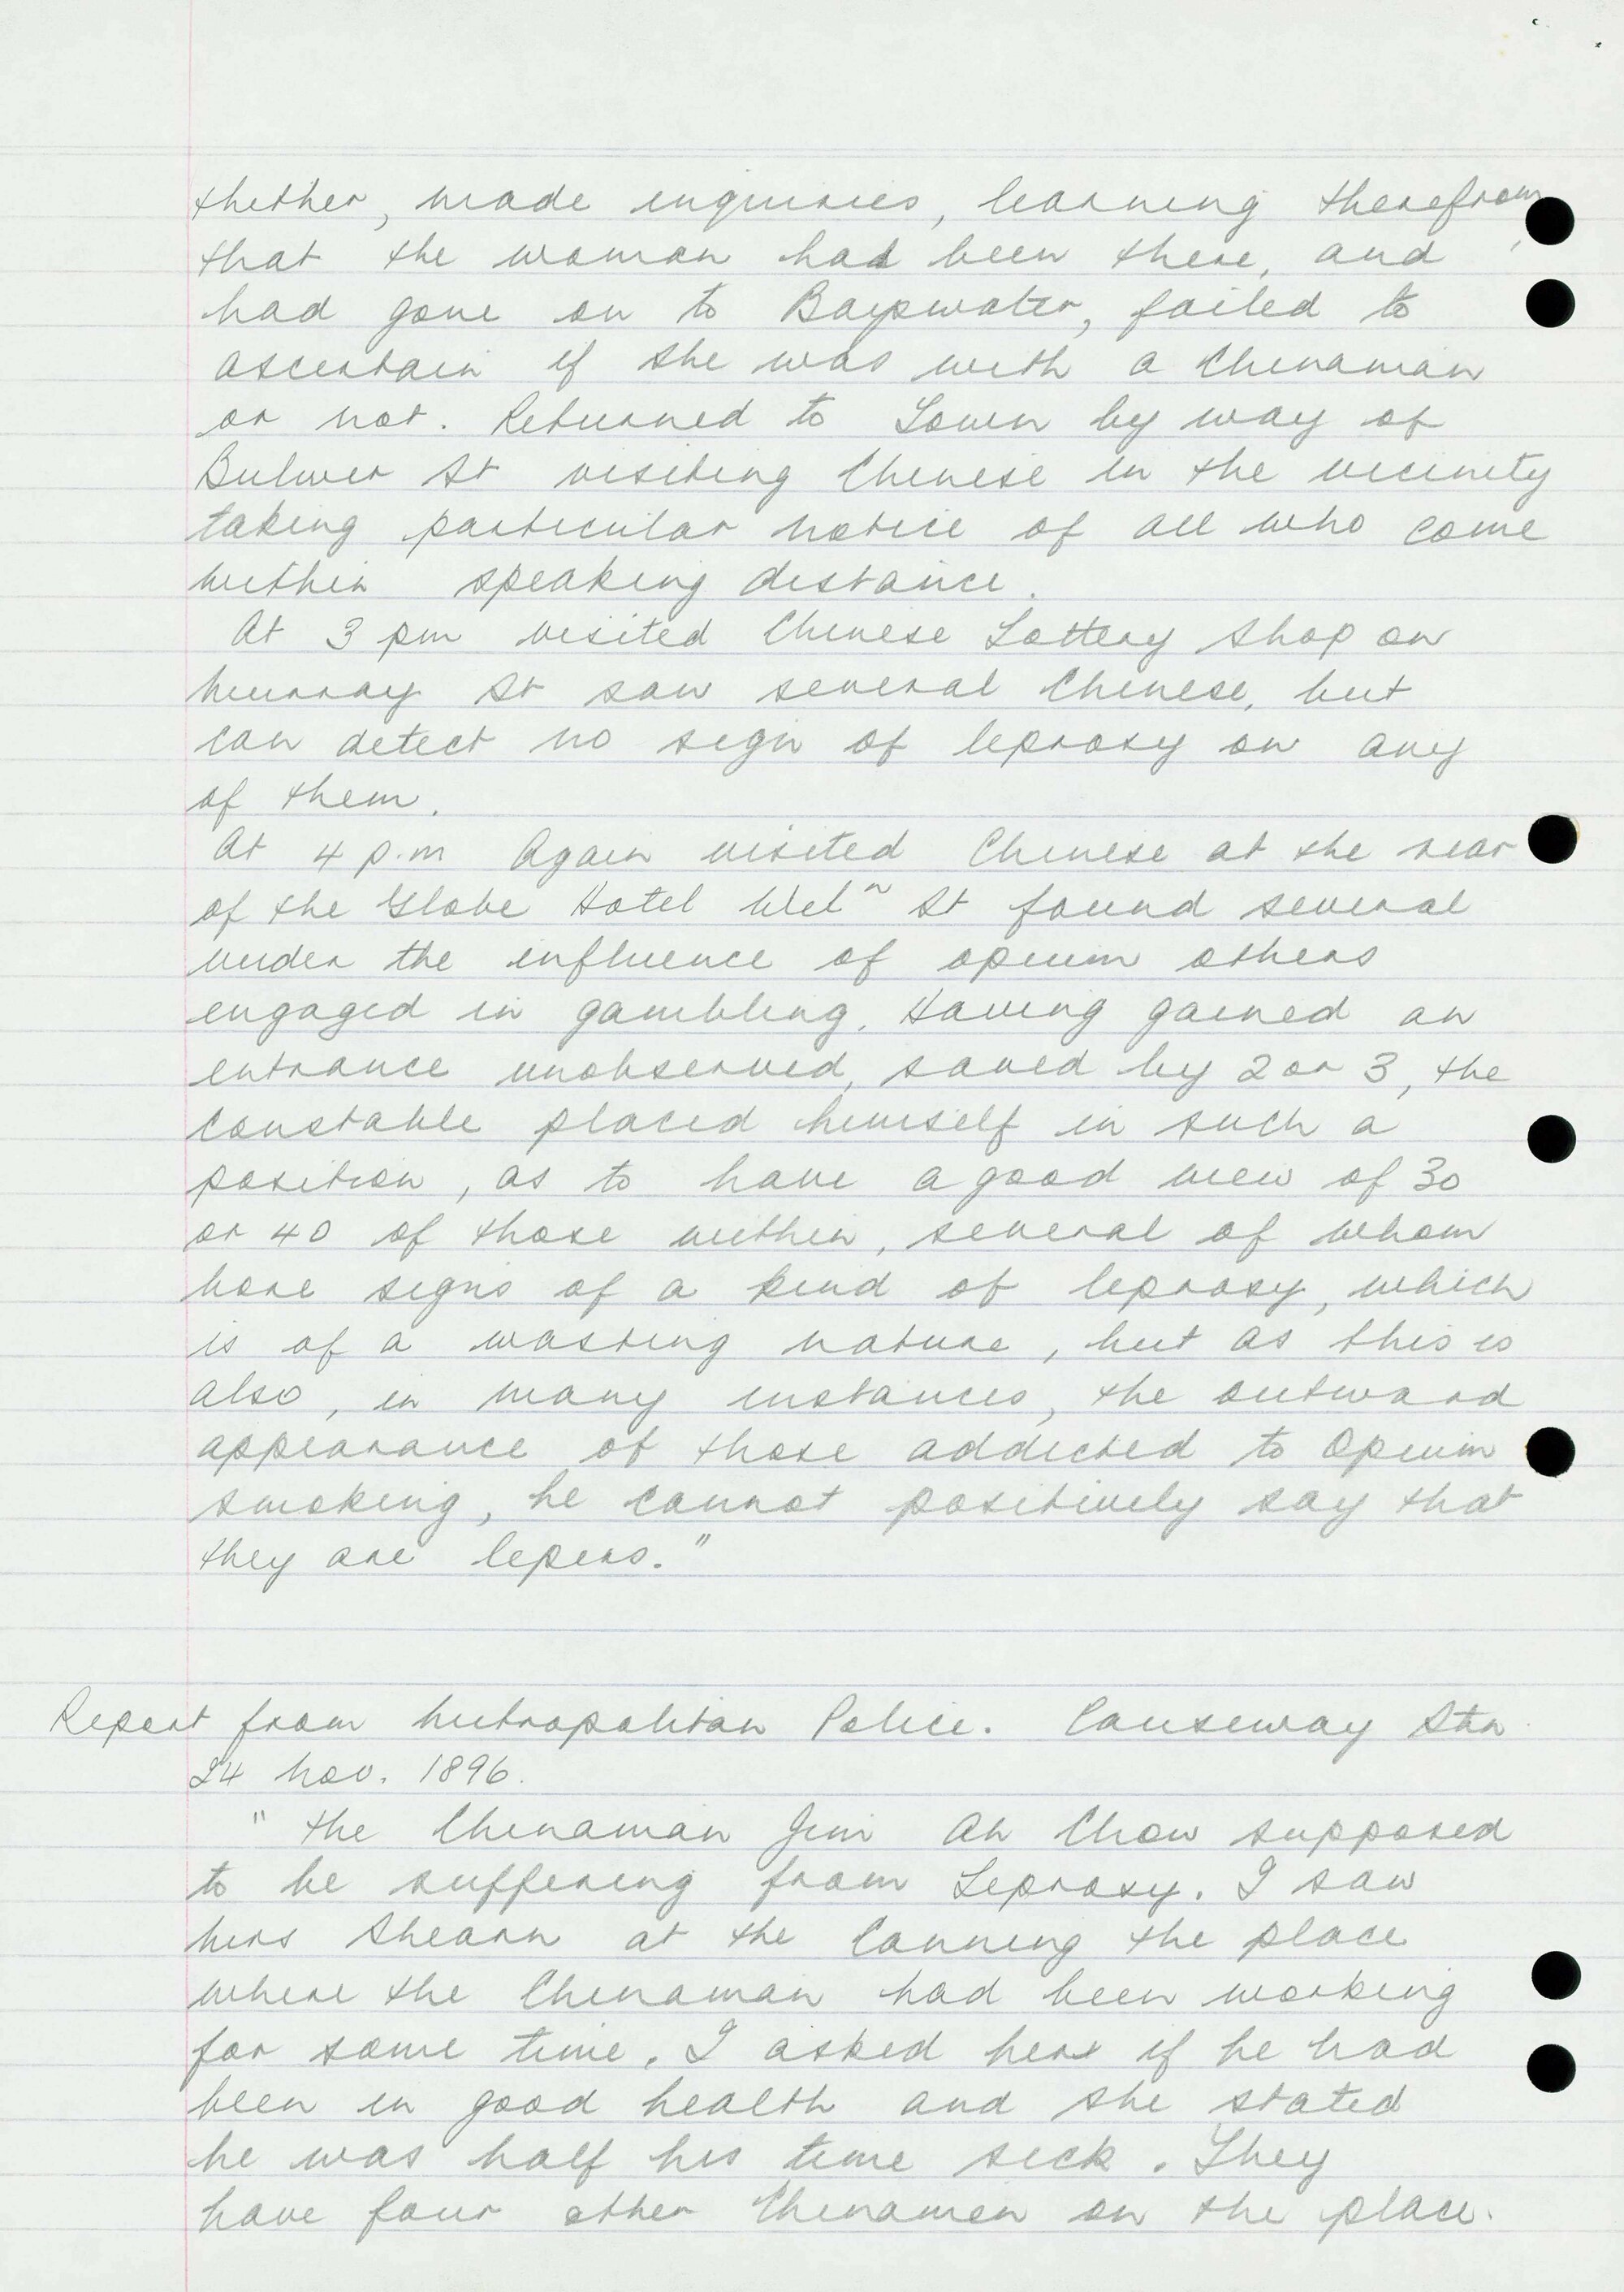 thether, made enquiries, learning therefrom,
that the woman had been there, and
had gone on to Bayswater, failed to
ascertain if she was with a Chinaman
or not. Returned to Town by way of
Bulwer St visiting Chinese in the vicinity
taking particular notice of all who come
within speaking distance.
At 3 pm visited Chinese Lottery shop on
Murray St saw several Chinese, but
can detect no sign of leprosy on any
of them.
At 4 p.m Again visited Chinese at the rear
of the Globe Hotel Welⁿ St found several
under the influence of opium others
engaged in gambling. Having gained an
entrance unobserved, saved by 2 or 3, the
constable placed himself in such a
position, as to have a good view of 30
or 40 of those within, several of whom
bore signs of a kind of leprosy, which
is of a wasting nature, but as this is
also, in many instances, the outward
appearance of those addicted to Opium
smoking, he cannot positively say that
they are lepers."
Report from Metropolitan Police. Causeway Stn.
24 Nov. 1896.
" the Chinaman Jim Ah Chow supposed
to be suffering from Leprosy. I saw
Mrs Shearn at the Canning the place
where the Chinaman had been working
for some time. I asked her if he had
been in good health and she stated
he was half his time sick. They
have four other Chinamen on the place.